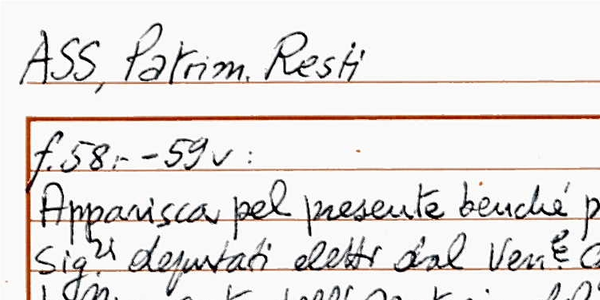 ASS, Patrim. Resti
f. 58r - 59v :
Apparisca pel presente benché p
Sig.ri deputati eletti dal Ven.e